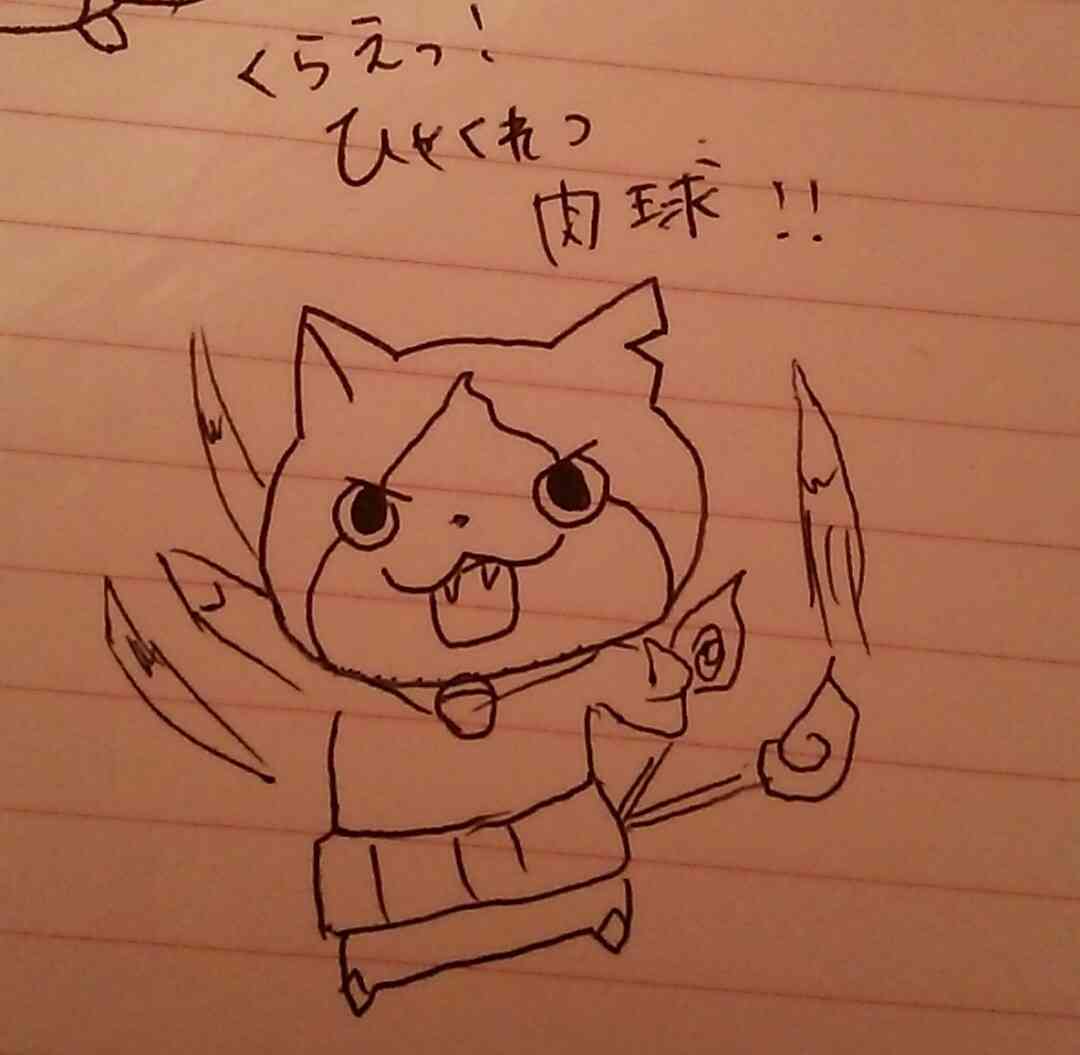 くらえっ!
ひゃくれつ
肉球!!